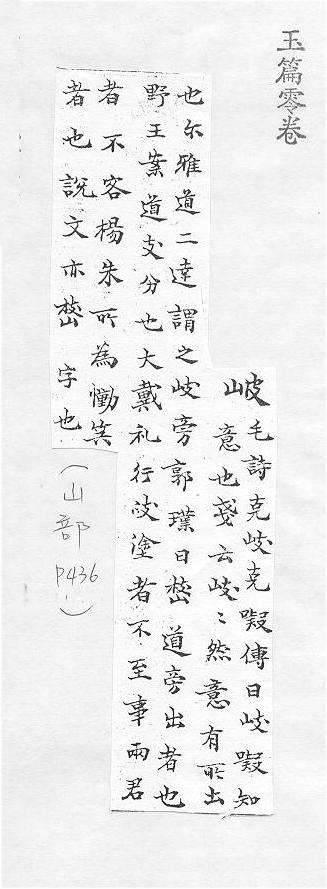 玉篇零卷
岐 毛詩克岐克嶷傳曰岐嶷知
意也箋云岐〻然意有所出
也尒雅道二達謂之岐旁郭璞曰道旁出者也
野王案道支分也大戴礼行岐塗者不至事兩君
者不容楊朱所為慟哭
者也說文亦字也
(山部 P436.)